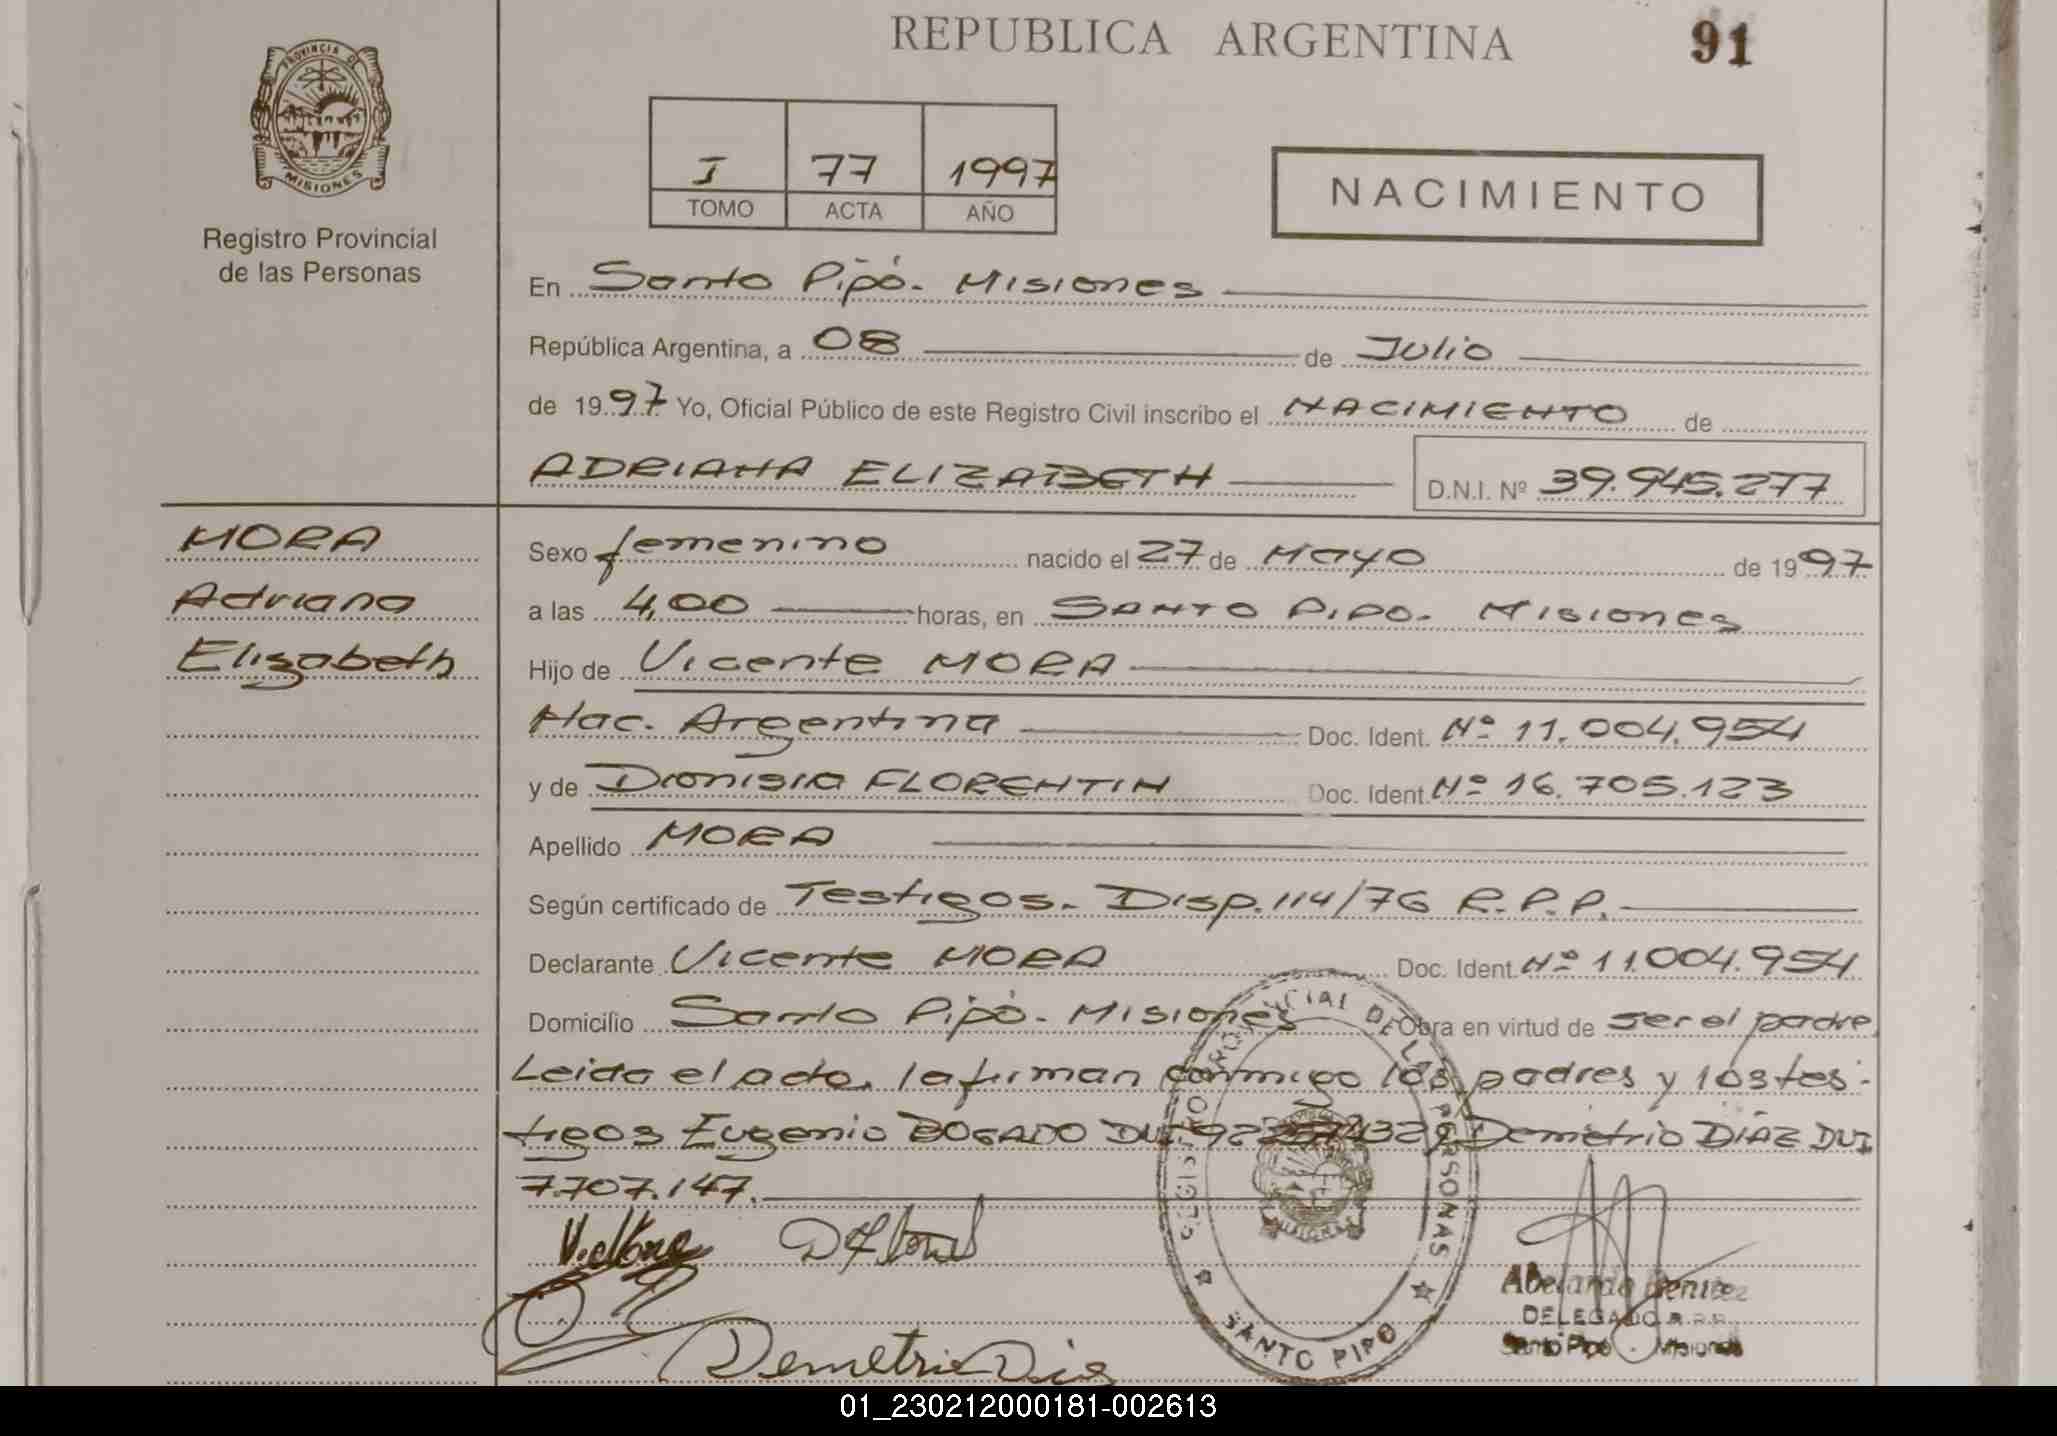 REPUBLICA ARGENTINA
91
PROVINCIA DE
MISIONES
Registro Provincial
de las Personas
I 77 1997
TOMO ACTA AÑO
NACIMIENTO
En Santo Pipó. Misiones
República Argentina, a 08 de Julio
de 1997 Yo, Oficial Público de este Registro Civil inscribo el NACIMIENTO de
ADRIANA ELIZABETH
D.N.I. Nº 39.945.277
MORA
Adriana
Elizabeth
Sexo femenino nacido el 27 de Mayo de 1997
a las 4,00 horas, en SANTO PIPO. Misiones
Hijo de Vicente MORA
Nac. Argentina Doc. Ident. Nº 11.004.954
y de Dionisia FLORENTIN Doc. Ident. Nº 16.705.123
Apellido MORA
Según certificado de Testigos. Disp. 114/76 R.P.P.
Declarante Vicente MORA Doc. Ident. Nº 11.004.954
Domicilio Santo Pipó. Misiones Obra en virtud de ser el padre.
Leida el acta, la firman conmigo los padres y los tes-
tigos Eugenio BOGADO DUI Demetrio DIAZ DUI
7.707.147.
REGISTRO PROVINCIAL DE LAS PERSONAS
SANTO PIPO
Demetrio Dia
Abelardo Benitez
DELEGADO R.P.P.
Santo Pipó - Misiones
01_230212000181-002613